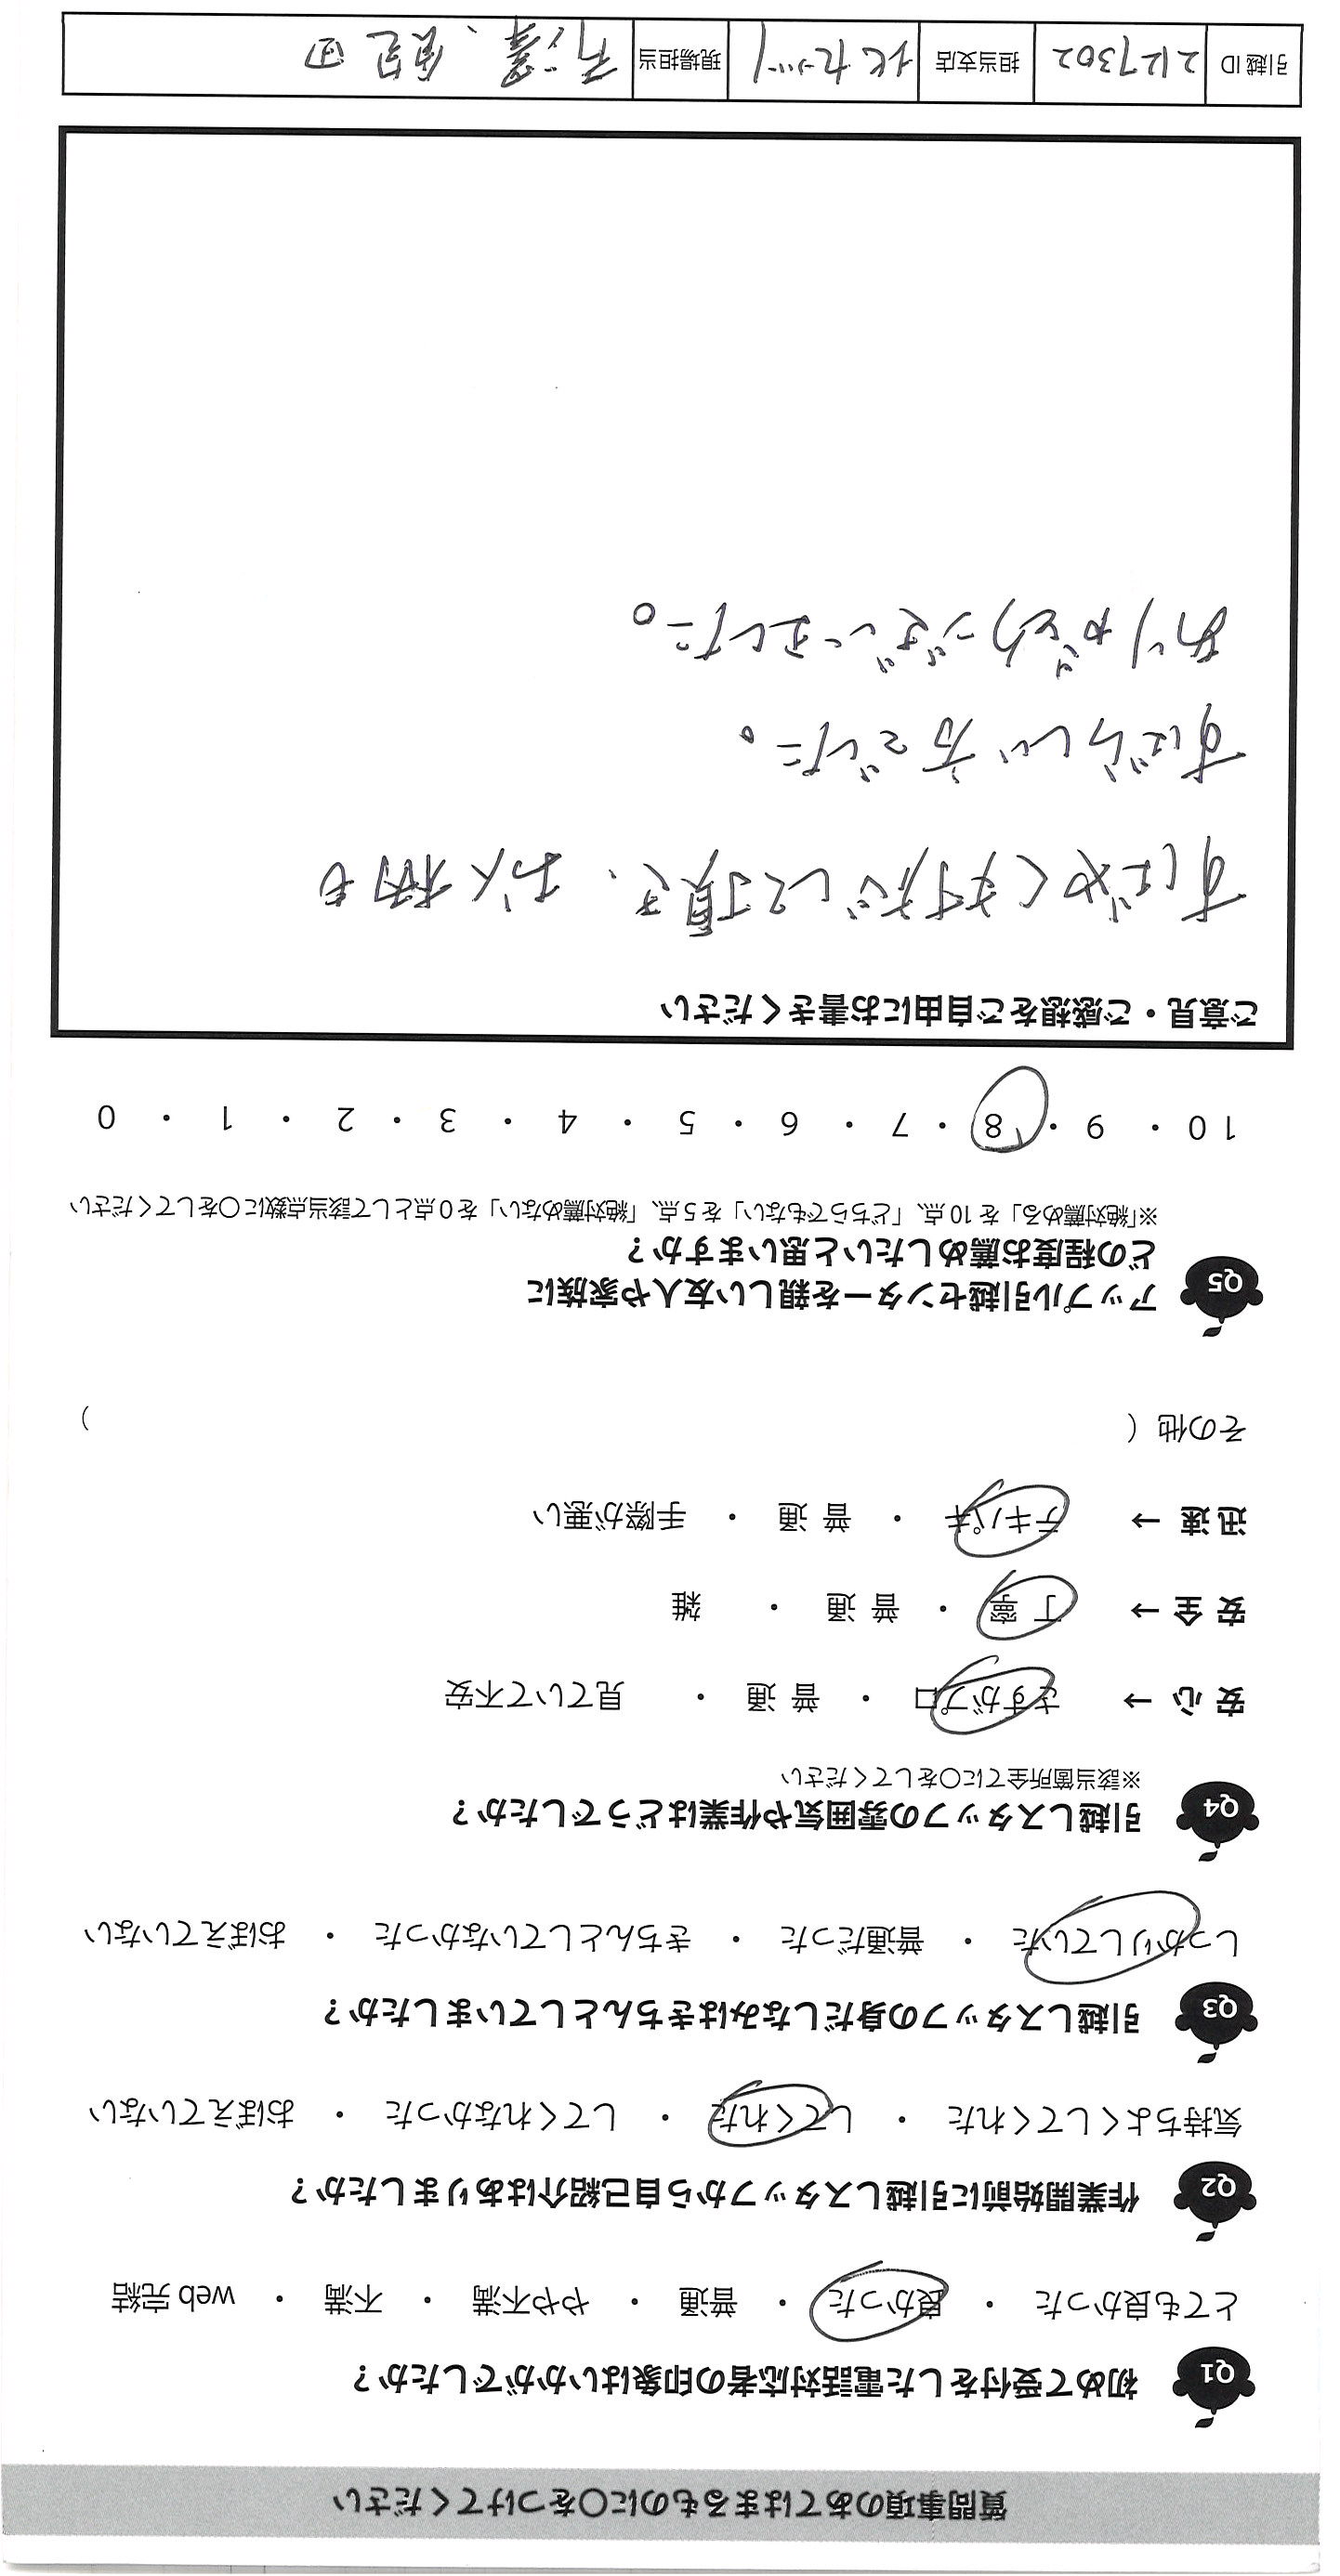 質問事項のあてはまるものに〇をつけてください
Q1 初めて受付をした電話対応者の印象はいかがでしたか?
とても良かった ・ 良かった ・ 普通 ・ やや不満 ・ 不満 ・ web 完結
Q2 作業開始前に引越しスタッフから自己紹介はありましたか?
気持ちよくしてくれた ・ してくれた ・ してくれなかった ・ おぼえていない
Q3 引越しスタッフの身だしなみはきちんとしていましたか?
しっかりしていた ・ 普通だった ・ きちんとしていなかった ・ おぼえていない
Q4 引越しスタッフの雰囲気や作業はどうでしたか?
※該当箇所全てに〇をしてください
安 心 → さすがプロ ・ 普 通 ・ 見ていて不安
安 全 → 丁 寧 ・ 普 通 ・ 雑
迅 速 → テキパキ ・ 普 通 ・ 手際が悪い
その他 ( )
Q5 アップル引越センターを親しい友人や家族に
どの程度お薦めしたいと思いますか?
※「絶対薦める」を 10 点、「どちらでもない」を 5 点、「絶対薦めない」を 0 点として該当点数に〇をしてください
10 ・ 9 ・ 8 ・ 7 ・ 6 ・ 5 ・ 4 ・ 3 ・ 2 ・ 1 ・ 0
ご意見・ご感想をご自由にお書きください
すばやく対応して頂き、お人柄も
すばらしい方でした。
ありがとうございました。
引越 ID 2127302 担当支店 北九州 現場担当